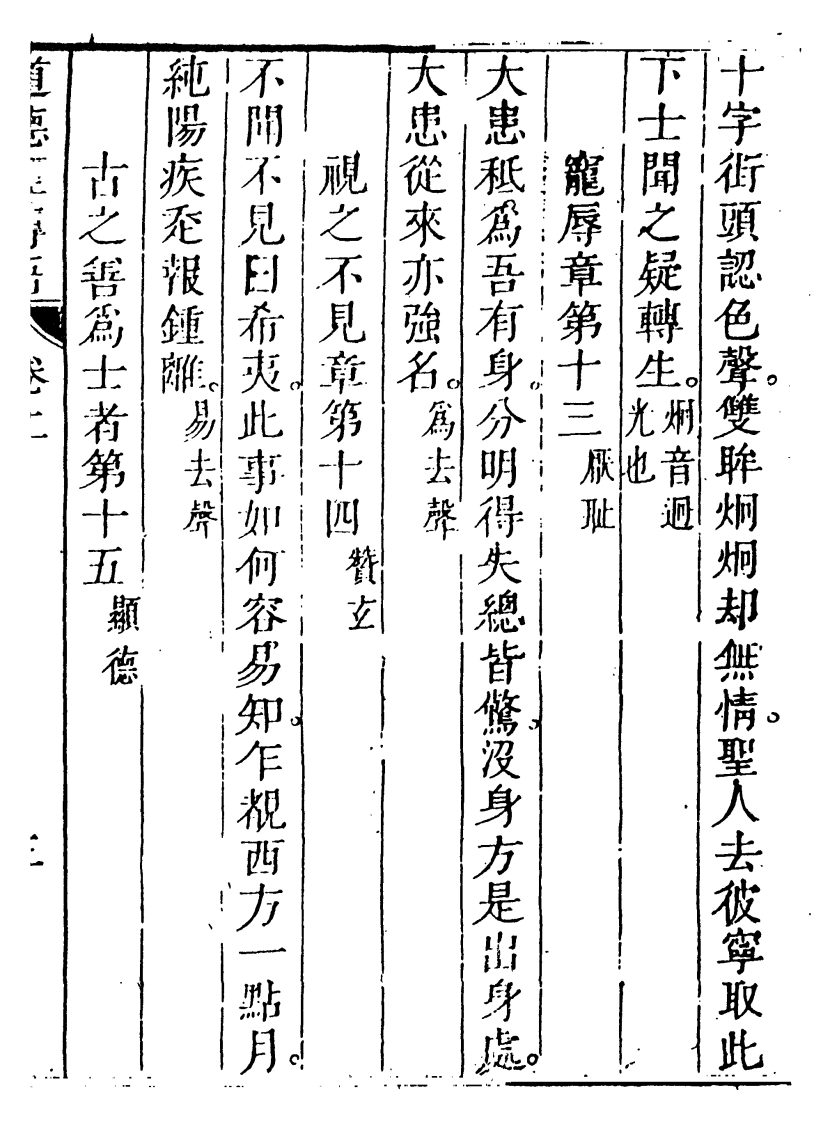 十字街頭認色聲。雙眸炯炯却無情。聖人去彼寧取此
下士聞之疑轉生。炯音迥光也
寵辱章第十三 厭恥
大患秪爲吾有身。分明得失總皆驚。沒身方是出身處。
大患從來亦強名。爲去聲
視之不見章第十四 贊玄
不聞不見曰希夷。此事如何容易知。乍覩西方一點月。
純陽疾走報鍾離。易去聲
古之善爲士者第十五 顯德
道德 卷上